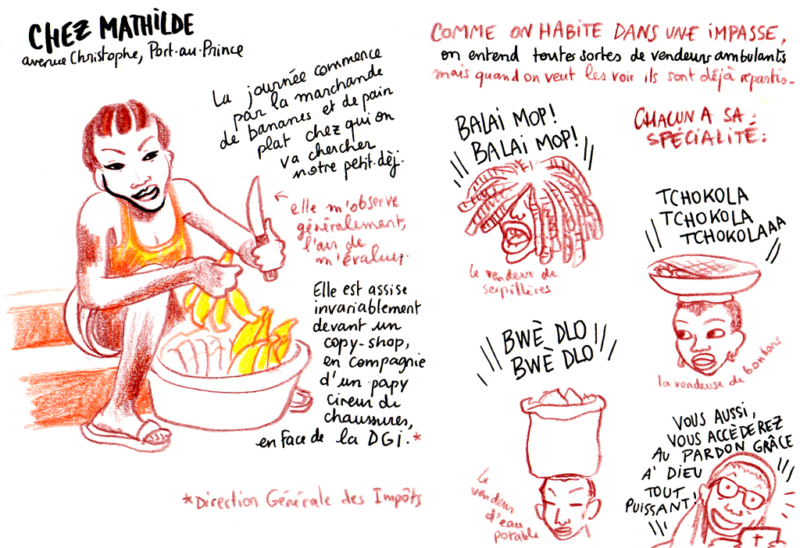 CHEZ MATHILDE
avenue Christophe, Port-au-Prince
La journée commence
par la marchande
de bananes et de pain
plat chez qui on
va chercher
notre petit-déj.
elle m'observe
généralement,
l'air de
m'évaluer.
Elle est assise
invariablement
devant un
copy-shop,
en compagnie
d'un papy
cireur de
chaussures,
en face de la DGI.*
*Direction Générale des Impôts
COMME ON HABITE DANS UNE IMPASSE,
on entend toutes sortes de vendeurs ambulants
mais quand on veut les voir ils sont déjà repartis.
CHACUN A SA
SPÉCIALITÉ:
BALAI MOP!
BALAI MOP!
le vendeur de
serpillères
TCHOKOLA
TCHOKOLA
TCHOKOLAAA
la vendeuse de bonbons
BWÈ DLO
BWÈ DLO
le
vendeur
d'eau
potable
VOUS AUSSI,
VOUS ACCÈDEREZ
AU PARDON GRÂCE
A' DIEU
TOUT
PUISSANT!